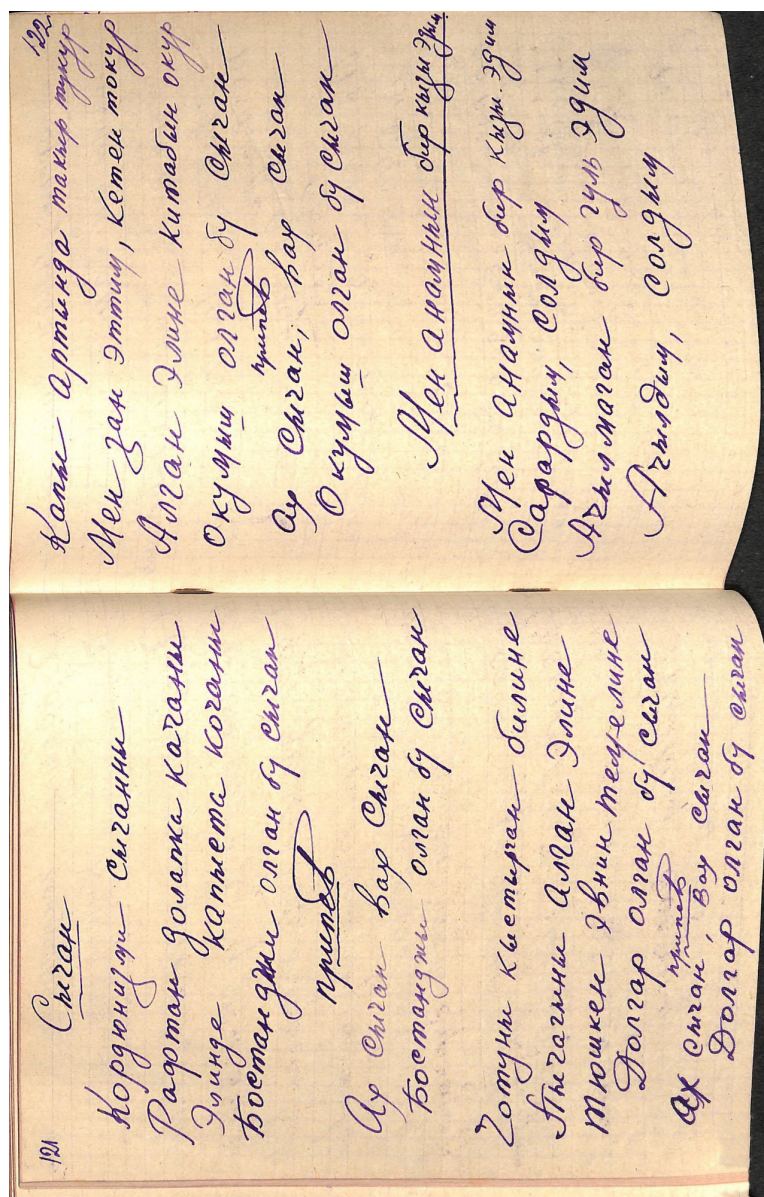 121
Сычан
Кордюнизми сычанны
Рафтан долапка качаны
Элинде капыста кочаны
Бостанджи олган бу сычан
припев
Ах сычан вах сычан
Бостанджы олган бу сычан
Чотуны кыстырган билине
Пычагыны алган элине
Тюшкен эвнин темелине
Долгар олган бу сычан
припев
Ах сычан, вах сычан
Долгар олган бу сычан
122
Капы артында такыр тукур
Мен зан эттим, кетен токур
Алган элине китабын окур
Окумыш олган бу сычан
припев
Ах сычан, вах сычан
Окумыш олган бу сычан
Мен анамнын бир кызы эдим
Мен анамнын бир кызы эдим
Сарардым, солдым
Ачылмаган бир гуль эдим
Ачылдым, солдым